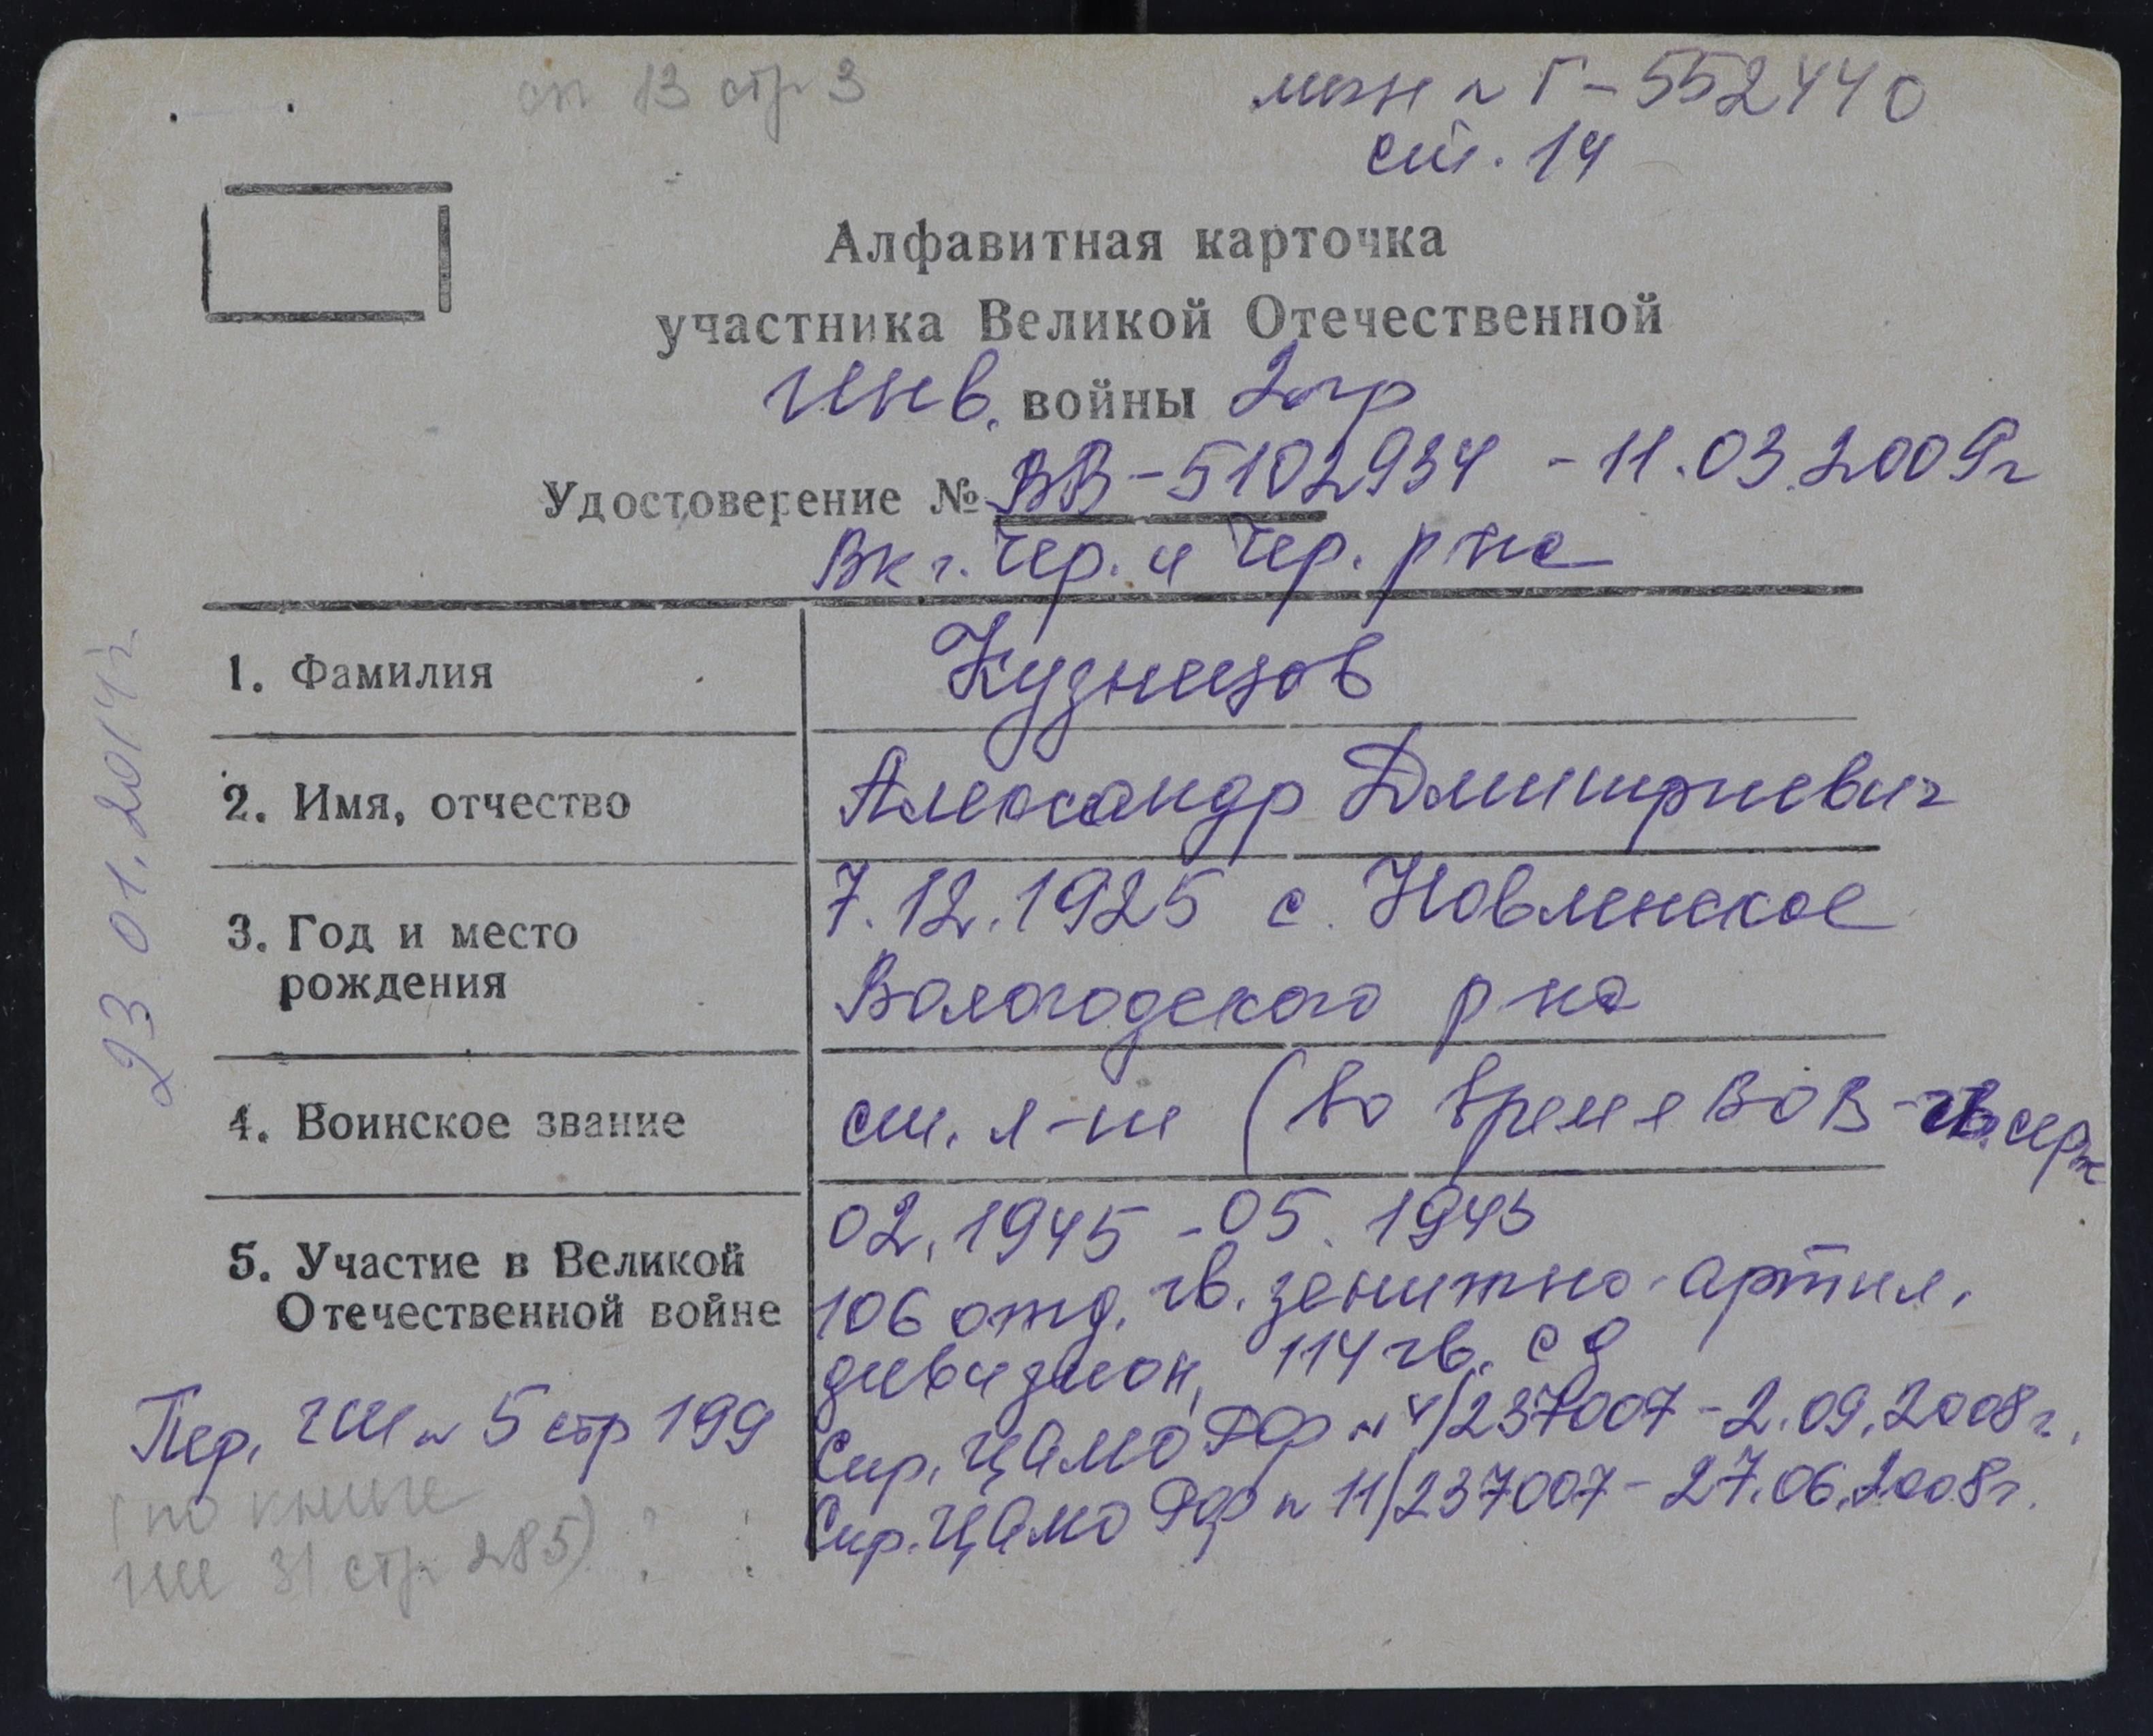 сп 13 стр 3
миж № Г-552440
ст. 14
Алфавитная карточка
участника Великой Отечественной
инв. войны 2 гр
Удостоверение № ВВ-5102934 - 11.03.2009г
ВК г. Чер. и Чер. р на
1. Фамилия Кузнецов
2. Имя, отчество Александр Дмитриевич
3. Год и место рождения 7.12.1925 с. Новленское
Вологодского р на
4. Воинское звание ст. л-т (во время ВОВ - гв. серж
5. Участие в Великой Отечественной войне 02.1945 - 05.1945
106 отд. гв. зенитно-артил.
дивизион, 114 гв. сд
Спр. ЦАМО РФ № 4/237007 - 2.09.2008г.
Спр. ЦАМО РФ № 11/237007 - 27.06.2008г.
Пер. ГШ № 5 стр 199
(по книге
ГШ 31 стр 285)
23 01.2014г